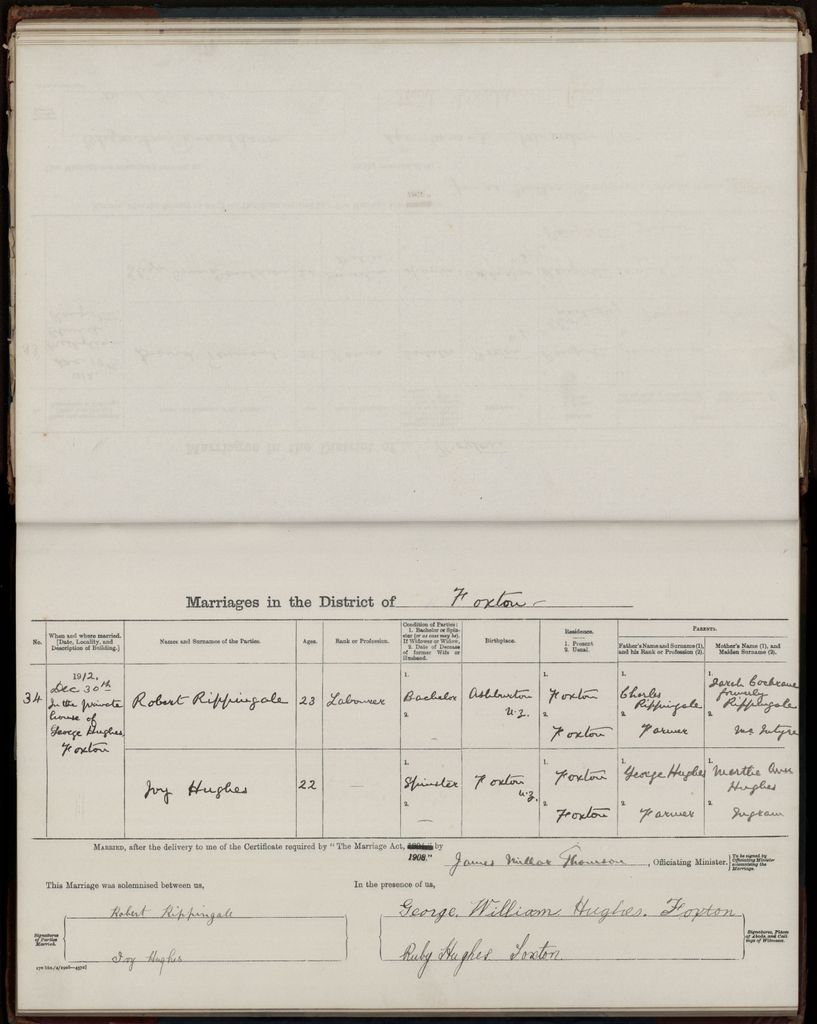 Marriages in the District of Foxton -
No.
When and where married.
[Date, Locality, and
Description of Building.]
Names and Surnames of the Parties.
Ages.
Rank or Profession.
Condition of Parties:
1. Bachelor or Spin-
ster (or as case may be).
If Widower or Widow,
2. Date of Decease
of former Wife or
Husband.
Birthplace.
Residence.
1. Present
2. Usual.
PARENTS.
Father's Name and Surname (1),
and his Rank or Profession (2).
Mother's Name (1), and
Maiden Surname (2).
34
1912,
Dec 30th
In the private
house of
George Hughes
Foxton
Robert Rippingale
23
Labourer
1.
Bachelor
2.
—
Ashburton
N.Z.
1.
Foxton
2.
Foxton
1.
Charles
Rippingale
2.
Farmer
1.
Sarah Cochrane
formerly
Rippingale
2.
McIntyre
Ivy Hughes
22
—
1.
Spinster
2.
—
Foxton
N.Z.
1.
Foxton
2.
Foxton
1.
George Hughes
2.
Farmer
1.
Martha Ann
Hughes
2.
Ingram
MARRIED, after the delivery to me of the Certificate required by "The Marriage Act, by
1908."
James Millar Thomson, Officiating Minister.
[To be signed by
Officiating Minister
solemnizing the
Marriage.
This Marriage was solemnised between us,
In the presence of us,
Signatures
of Parties
Married.
Robert Rippingale
Ivy Hughes
George William Hughes. Foxton
Ruby Hughes Foxton.
Signatures, Places
of Abode, and Call-
ings of Witnesses.